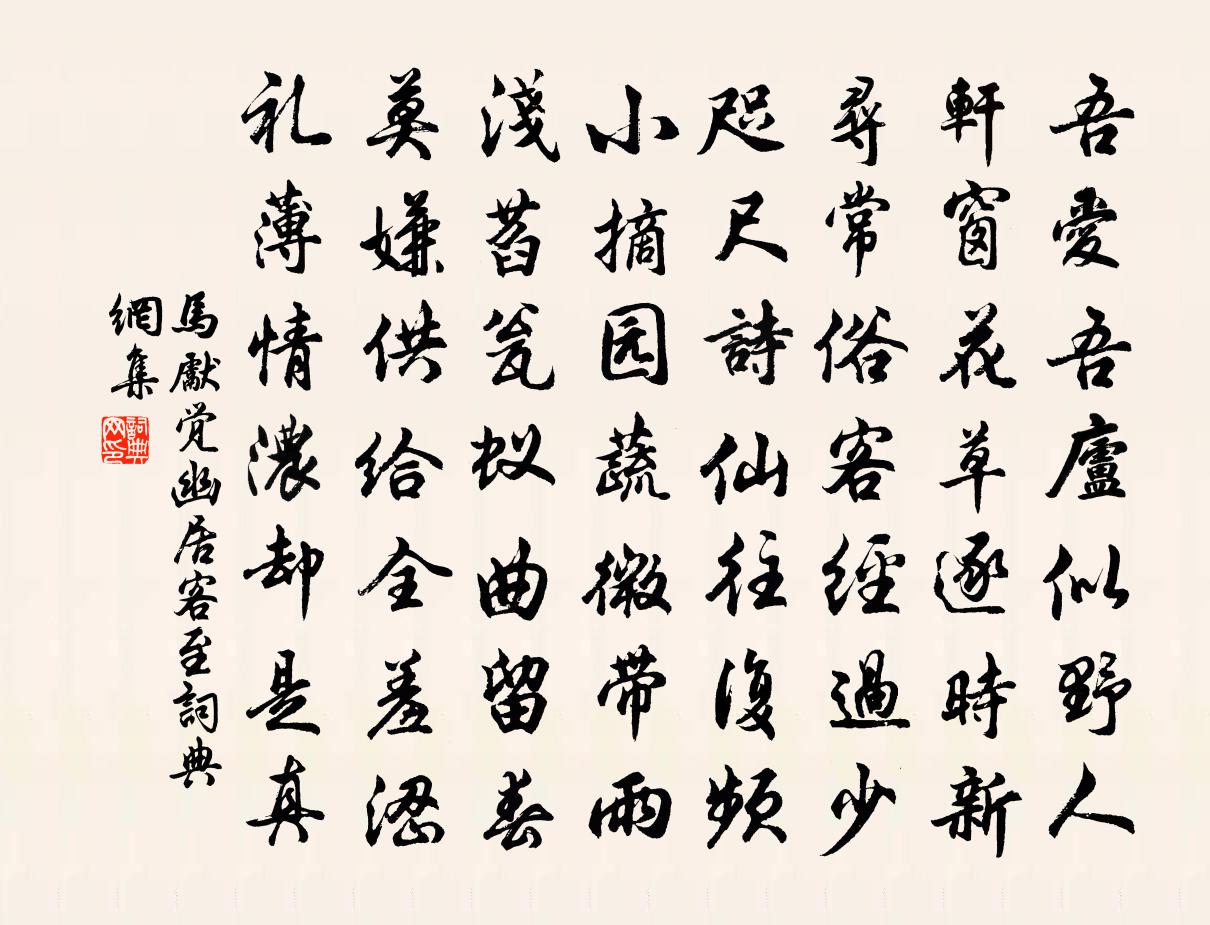 吾愛吾廬似野人
軒窗花草逐時新
尋常俗客經過少
咫尺詩仙往復頻
小摘园蔬微带雨
淺蒭瓮蚁曲留春
莫嫌供给全羞澀
礼薄情濃却是真
馬獻覚幽居客至詞典
網集
詞典
网印